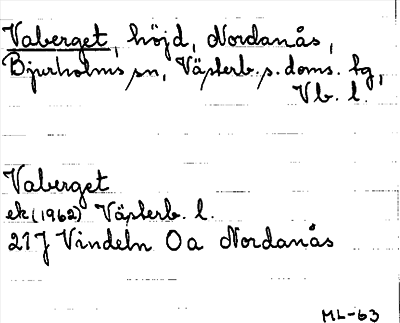 Vaberget, höjd, Nordanås,
Bjurholms sn, Västerb. s. doms. tg,
Vb. l.
Vaberget
ek (1962) Västerb. l.
21J Vindeln 0a Nordanås
ML-63